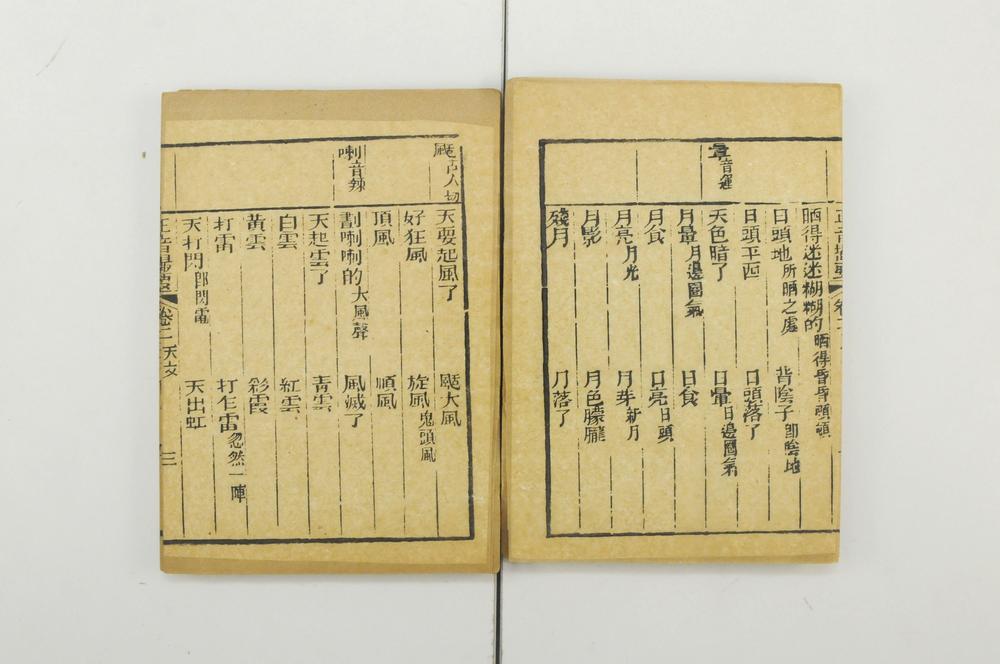 暈音運
正音撮要 卷二
晒得迷迷糊糊的 晒得昏昏頭頓
日頭地 所晒之處 背陰子 即陰地
日頭平西 日頭落了
天色暗了 日暈 日邊圍氣
月暈 月邊圍氣 日食
月食 日亮 日頭
月亮 月光 月芽 新月
月影 月色朦朧
殘月 月落了
颳古 切
喇音辣
天要起風了 颳大風
好狂風 旋風 鬼頭風
頂風 順風
劃喇喇的 大風聲 風滅了
天起雲了 青雲
白雲 紅雲
黃雲 彩霞
打雷 打乍雷 忽然一陣
天打閃 即閃電 天出虹
正音撮要 卷二 天文 三